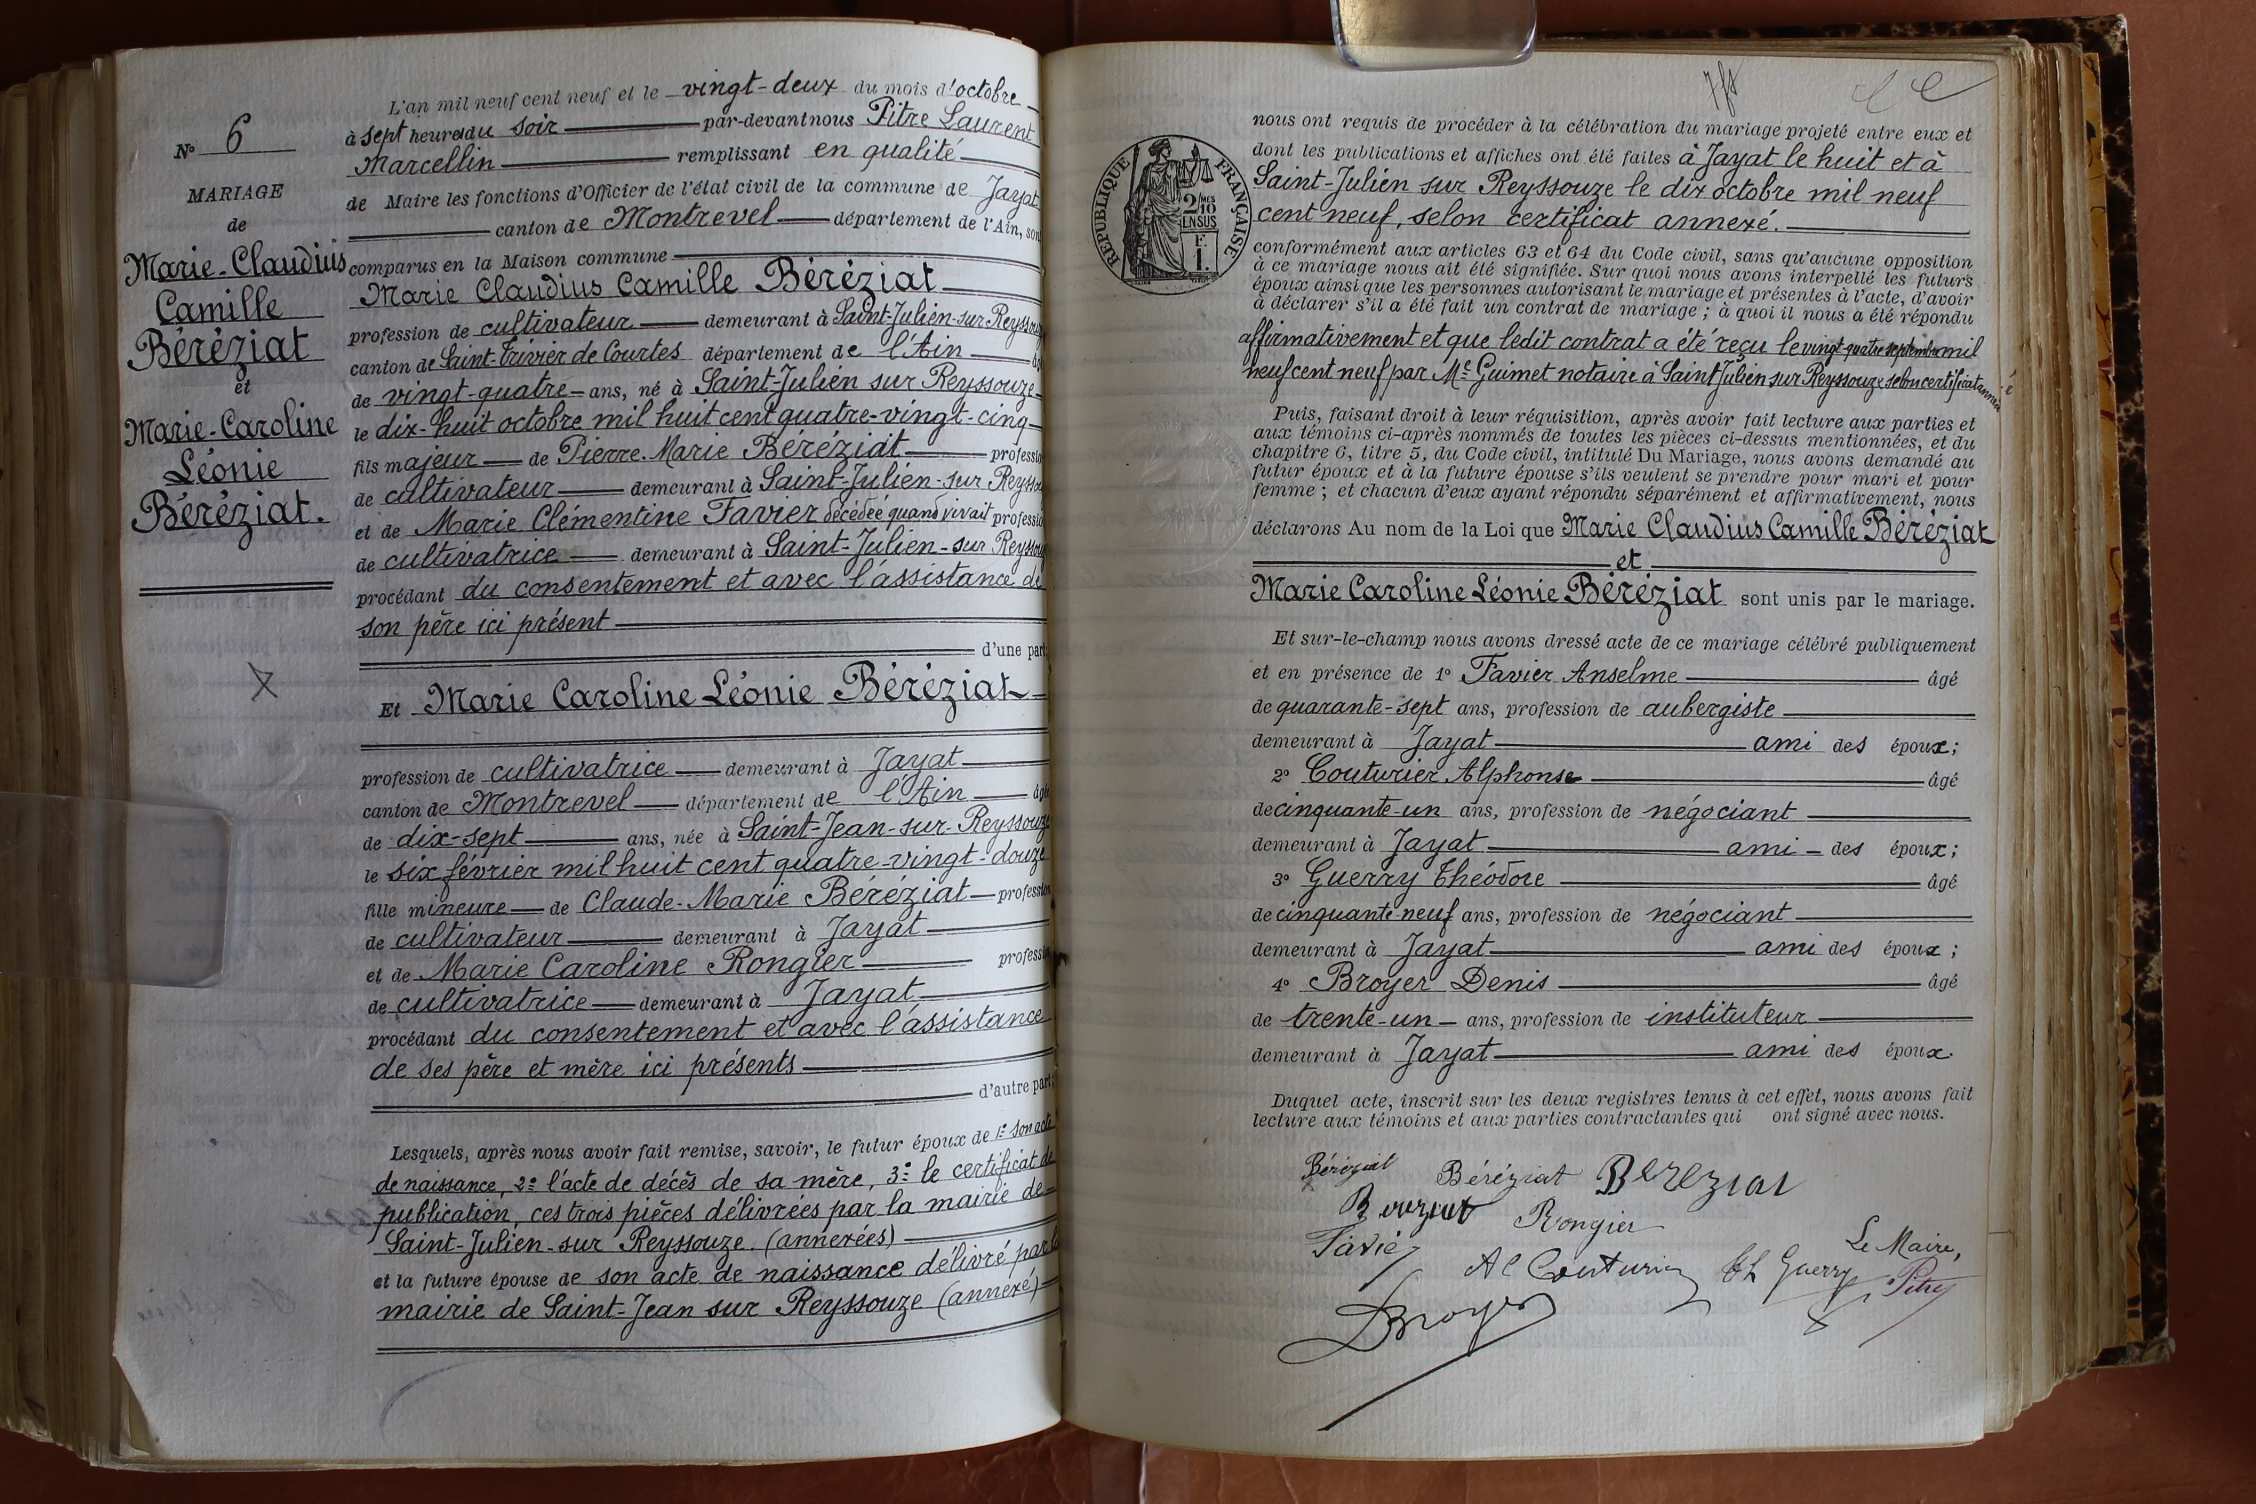 N° 6
MARIAGE
de
Marie-Claudius
Camille
Béréziat
et
Marie-Caroline
Léonie
Béréziat.
L'an mil neuf cent neuf et le vingt-deux du mois d'octobre
à sept heures du soir par-devant nous Pitre Laurent
Marcellin remplissant en qualité
de Maire les fonctions d'Officier de l'état civil de la commune de Jayat
canton de Montrevel département de l'Ain, sont
comparus en la Maison commune
Marie Claudius Camille Béréziat
profession de cultivateur demeurant à Saint-Julien-sur Reyssouze
canton de Saint-Trivier de Courtes département de l'Ain
de vingt-quatre ans, né à Saint-Julien sur Reyssouze
le dix-huit octobre mil huit cent quatre-vingt-cinq
fils majeur de Pierre-Marie Béréziat profession
de cultivateur demeurant à Saint-Julien-sur Reyssou
et de Marie Clémentine Favier décédée quand vivait profession
de cultivatrice demeurant à Saint-Julien-sur Reyssou
procédant du consentement et avec l'assistance de
son père ici présent
d'une part
Et Marie Caroline Léonie Béréziat
profession de cultivatrice demeurant à Jayat
canton de Montrevel département de l'Ain âgée
de dix-sept ans, née à Saint-Jean-sur-Reyssouze
le six février mil huit cent quatre-vingt-douze
fille mineure de Claude-Marie Béréziat profession
de cultivateur demeurant à Jayat
et de Marie Caroline Rongier profession
de cultivatrice demeurant à Jayat
procédant du consentement et avec l'assistance
de ses père et mère ici présents
d'autre part
Lesquels, après nous avoir fait remise, savoir, le futur époux de 1° son acte
de naissance, 2° l'acte de décès de sa mère, 3° le certificat de
publication, ces trois pièces délivrées par la mairie de
Saint-Julien-sur Reyssouze (annexées)
et la future épouse de son acte de naissance délivré par la
mairie de Saint-Jean sur Reyssouze (annexé)
RÉPUBLIQUE FRANÇAISE
2/10 MES
EN SUS
F.
1.
nous ont requis de procéder à la célébration du mariage projeté entre eux et
dont les publications et affiches ont été faites à Jayat le huit et à
Saint-Julien sur Reyssouze le dix octobre mil neuf
cent neuf, selon certificat annexé.
conformément aux articles 63 et 64 du Code civil, sans qu'aucune opposition
à ce mariage nous ait été signifiée. Sur quoi nous avons interpellé les futurs
époux ainsi que les personnes autorisant le mariage et présentes à l'acte, d'avoir
à déclarer s'il a été fait un contrat de mariage ; à quoi il nous a été répondu
affirmativement et que ledit contrat a été reçu le vingt-quatre septembre mil
neuf cent neuf par Me Guimet notaire à Saint Julien sur Reyssouze selon certificat annexé
Puis, faisant droit à leur réquisition, après avoir fait lecture aux parties et
aux témoins ci-après nommés de toutes les pièces ci-dessus mentionnées, et du
chapitre 6, titre 5, du Code civil, intitulé Du Mariage, nous avons demandé au
futur époux et à la future épouse s'ils veulent se prendre pour mari et pour
femme ; et chacun d'eux ayant répondu séparément et affirmativement, nous
déclarons Au nom de la Loi que Marie Claudius Camille Béréziat
et
Marie Caroline Léonie Béréziat sont unis par le mariage.
Et sur-le-champ nous avons dressé acte de ce mariage célébré publiquement
et en présence de 1° Favier Anselme âgé
de quarante-sept ans, profession de aubergiste
demeurant à Jayat ami des époux;
2° Couturier Alphonse âgé
de cinquante-un ans, profession de négociant
demeurant à Jayat ami des époux;
3° Guerry Théodore âgé
de cinquante-neuf ans, profession de négociant
demeurant à Jayat ami des époux ;
4° Broyer Denis âgé
de trente-un ans, profession de instituteur
demeurant à Jayat ami des époux.
Duquel acte, inscrit sur les deux registres tenus à cet effet, nous avons fait
lecture aux témoins et aux parties contractantes qui ont signé avec nous.
Béréziat Béréziat Bereziat
Rongier
Favier
Al Couturier Th Guerry Le Maire,
Pitre
DBroyer